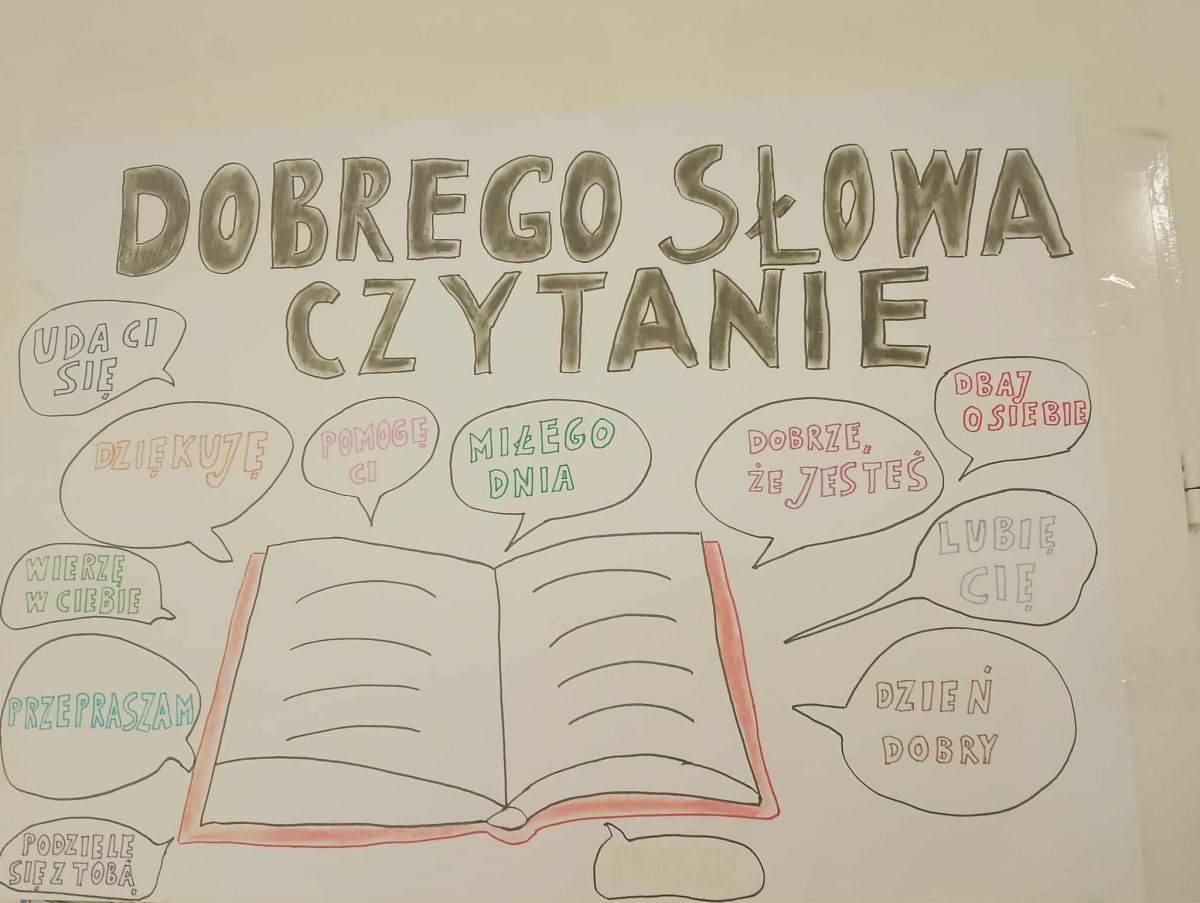 DOBREGO SŁOWA
CZYTANIE
UDA CI
SIĘ
DZIĘKUJĘ
POMOGĘ
CI
MIŁEGO
DNIA
DOBRZE,
ŻE JESTEŚ
DBAJ
O SIEBIE
WIERZĘ
W CIEBIE
LUBIĘ
CIĘ
PRZEPRASZAM
DZIEŃ
DOBRY
PODZIELĘ
SIĘ Z TOBĄ
PROSZĘ